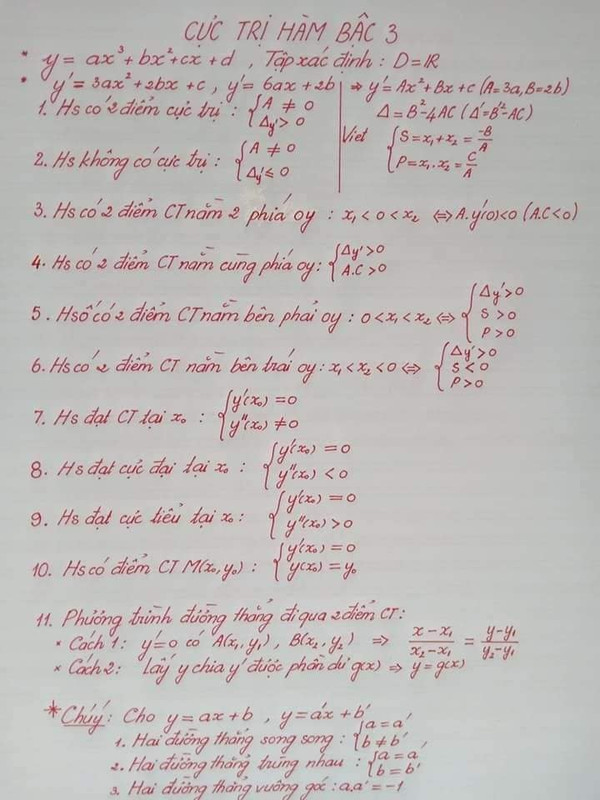 CỰC TRỊ HÀM BẬC 3
* y = ax³ + bx² + cx + d , Tập xác định : D = IR
* y' = 3ax² + 2bx + c , y' = 6ax + 2b | ⇒ y' = Ax² + Bx + c (A = 3a, B = 2b)
1. Hs có 2 điểm cực trị : { A ≠ 0
Δy' > 0
Δ = B² - 4AC (Δ' = B'² - AC)
Viet { S = x₁ + x₂ = -B/A
P = x₁ . x₂ = C/A
2. Hs không có cực trị : { A ≠ 0
Δy' ≤ 0
3. Hs có 2 điểm CT nằm 2 phiá oy : x₁ < 0 < x₂ ⇔ A.y'(0) < 0 (A.C < 0)
4. Hs có 2 điểm CT nằm cùng phiá oy : { Δy' > 0
A.C > 0
5. Hsố có 2 điểm CT nằm bên phải oy : 0 < x₁ < x₂ ⇔ { Δy' > 0
S > 0
P > 0
6. Hs có 2 điểm CT nằm bên trái oy : x₁ < x₂ < 0 ⇔ { Δy' > 0
S < 0
P > 0
7. Hs đạt CT tại x₀ : { y'(x₀) = 0
y''(x₀) ≠ 0
8. Hs đạt cực đại tại x₀ : { y'(x₀) = 0
y''(x₀) < 0
9. Hs đạt cực tiểu tại x₀ : { y'(x₀) = 0
y''(x₀) > 0
10. Hs có điểm CT M(x₀, y₀) : { y'(x₀) = 0
y(x₀) = y₀
11. Phương trình đường thẳng đi qua 2 điểm CT :
* Cách 1 : y' = 0 có A(x₁, y₁) , B(x₂, y₂) ⇒ x - x₁ / x₂ - x₁ = y - y₁ / y₂ - y₁
* Cách 2 : Lấy y chia y' được phần dư g(x) ⇒ y = g(x)
* Chú ý : Cho y = ax + b , y = a'x + b'
1. Hai đường thẳng song song : { a = a'
b ≠ b' ,
2. Hai đường thẳng trùng nhau : { a = a
b = b'
3. Hai đường thẳng vuông góc : a.a' = -1